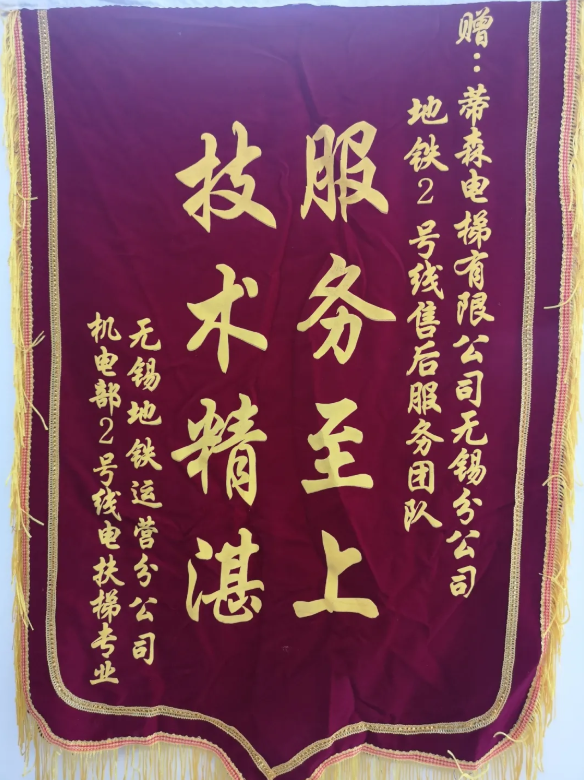 赠：蒂森电梯有限公司无锡分公司
地铁2号线售后服务团队
服务至上
技术精湛
无锡地铁运营分公司
机电部2号线电扶梯专业